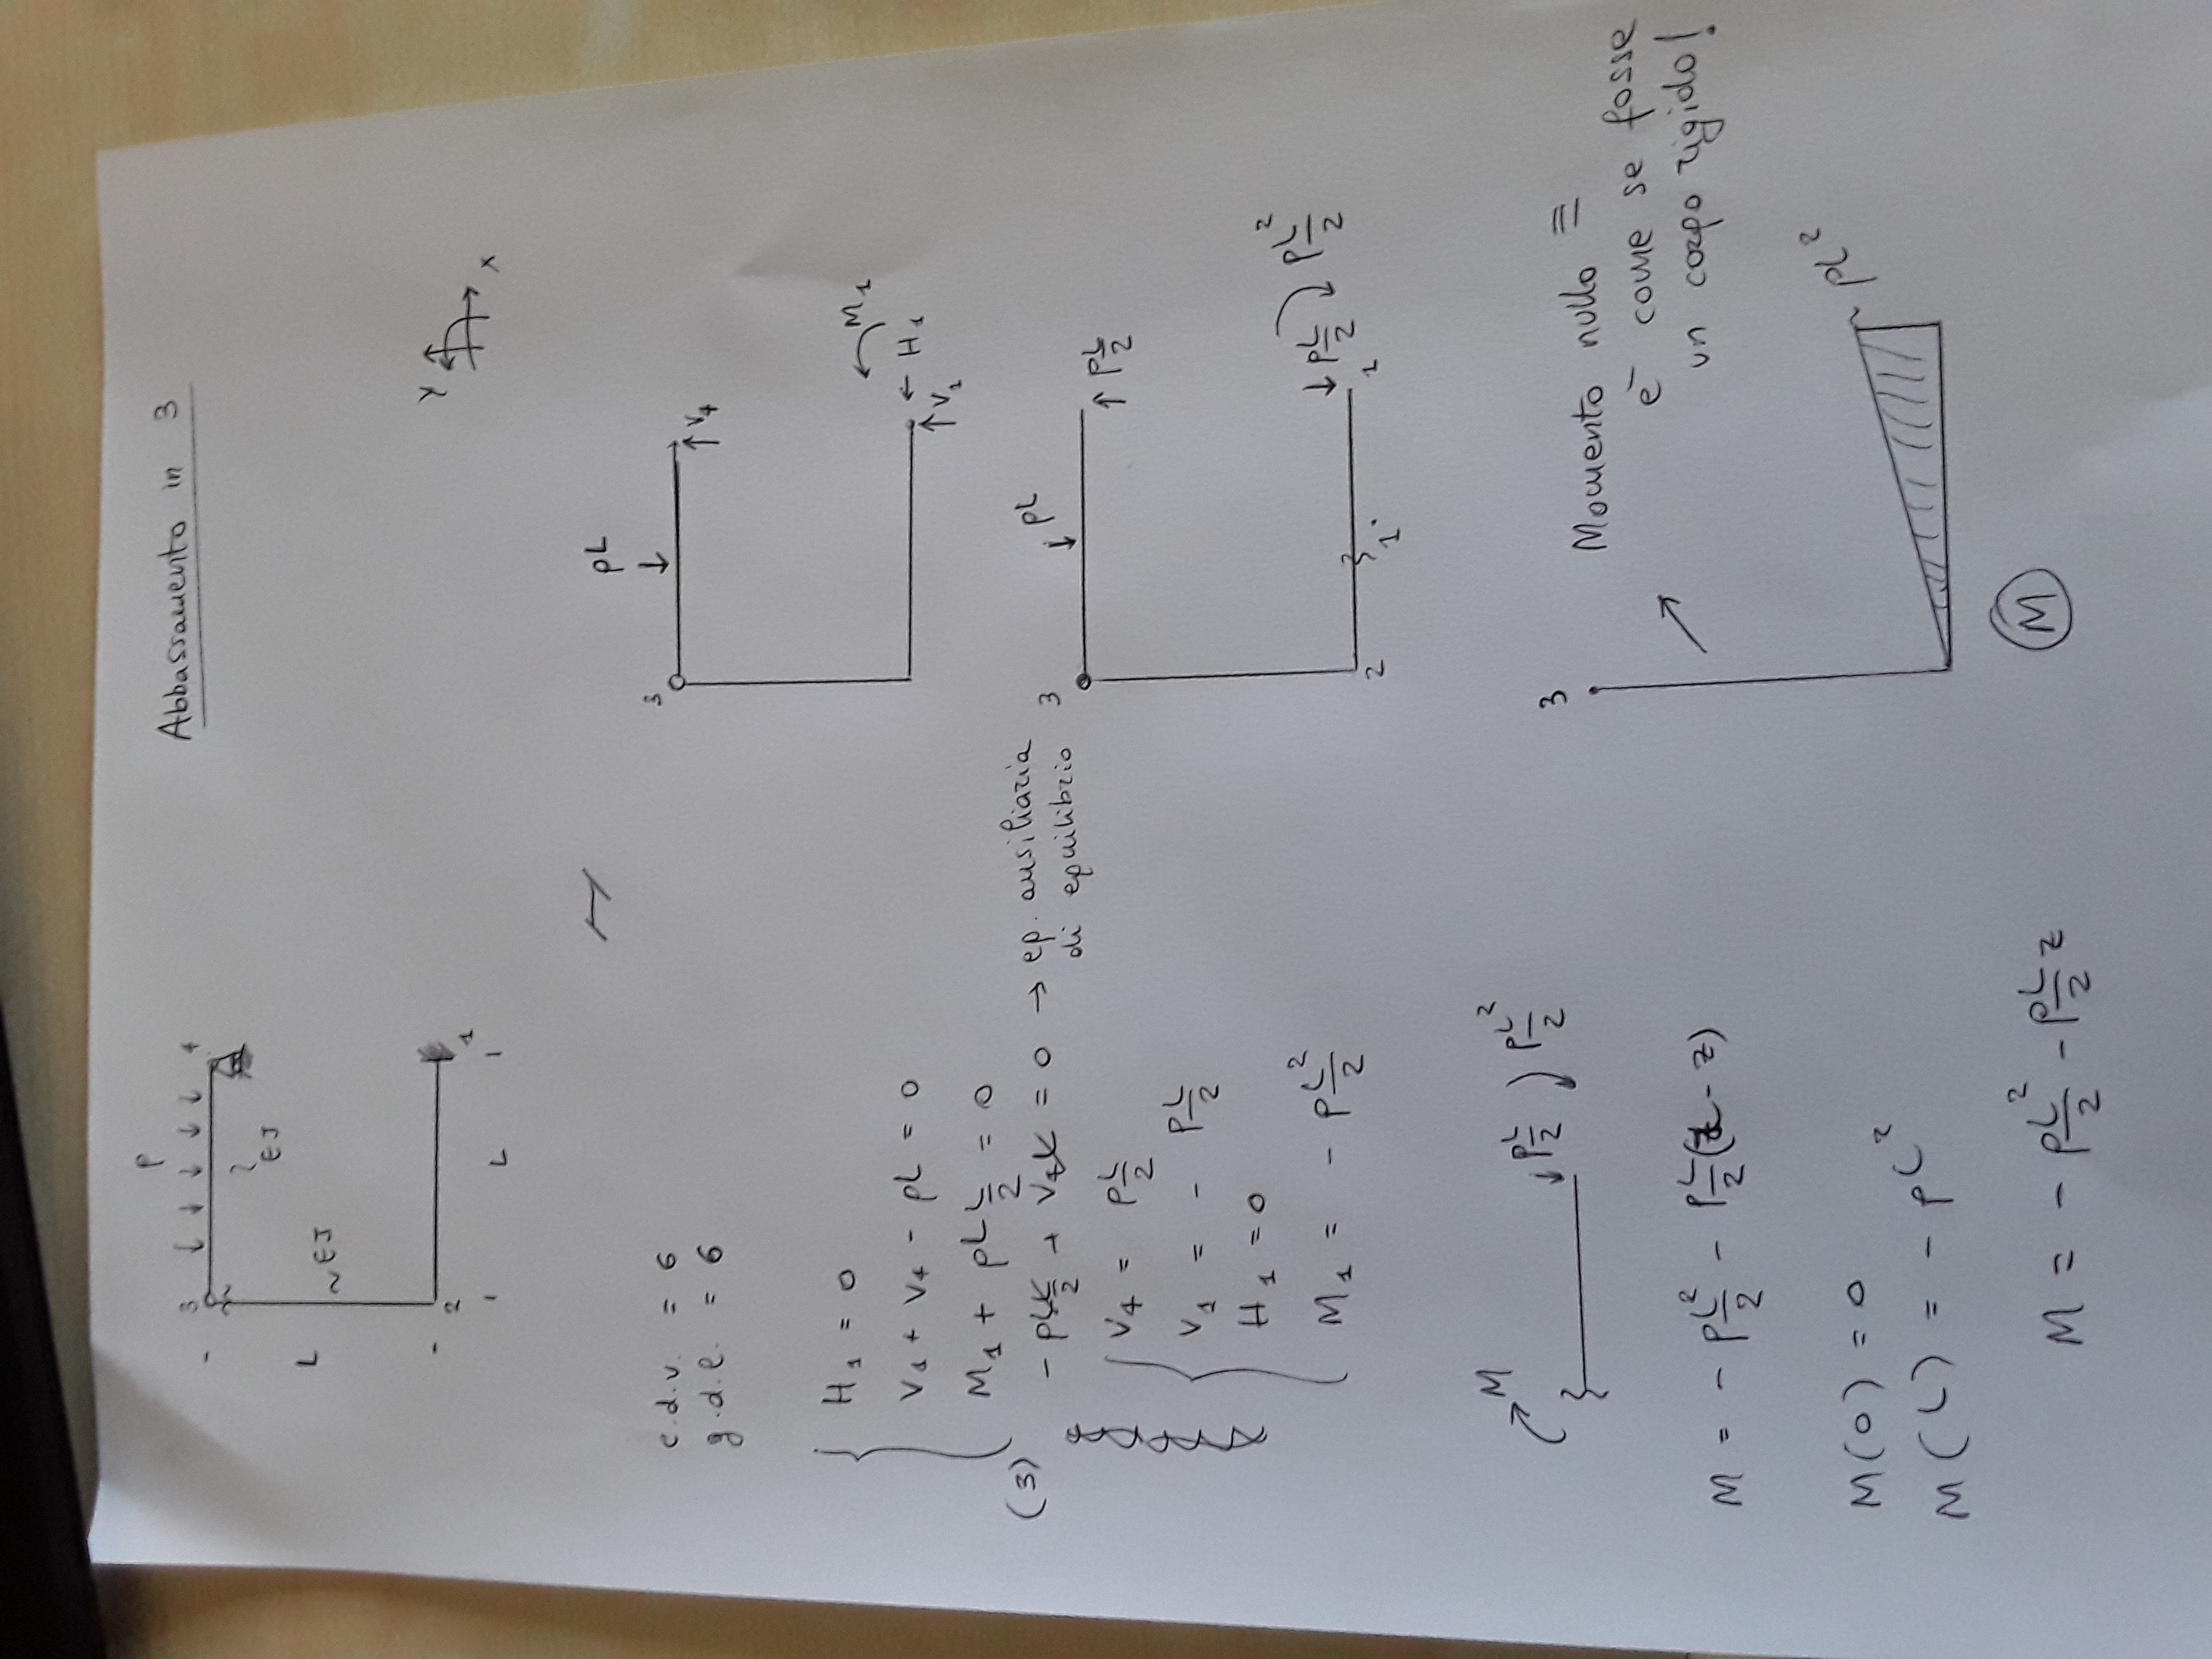 Abbassamento in 3
P
3 4
EJ
L
~EJ
2 1
L
Y
X
c.d.v. = 6
g.d.l. = 6
pL
3
V4
M1
H1
V1
H1 = 0
V1 + V4 - pL = 0
M1 + pL L/2 = 0
(3) - pL L/2 + V4 L = 0 → eq. ausiliaria
di equilibrio
V4 = pL/2
V1 = - pL/2
H1 = 0
M1 = - pL²/2
3
pL
pL/2
pL/2 pL²/2
2 1' 1
M
pL/2 pL²/2
M = - pL²/2 - pL/2 (L - z)
M(0) = 0
M(L) = - pL²
M = - pL²/2 - pL/2 z
3
Momento nullo =
è come se fosse
un corpo rigido!
pL²
M